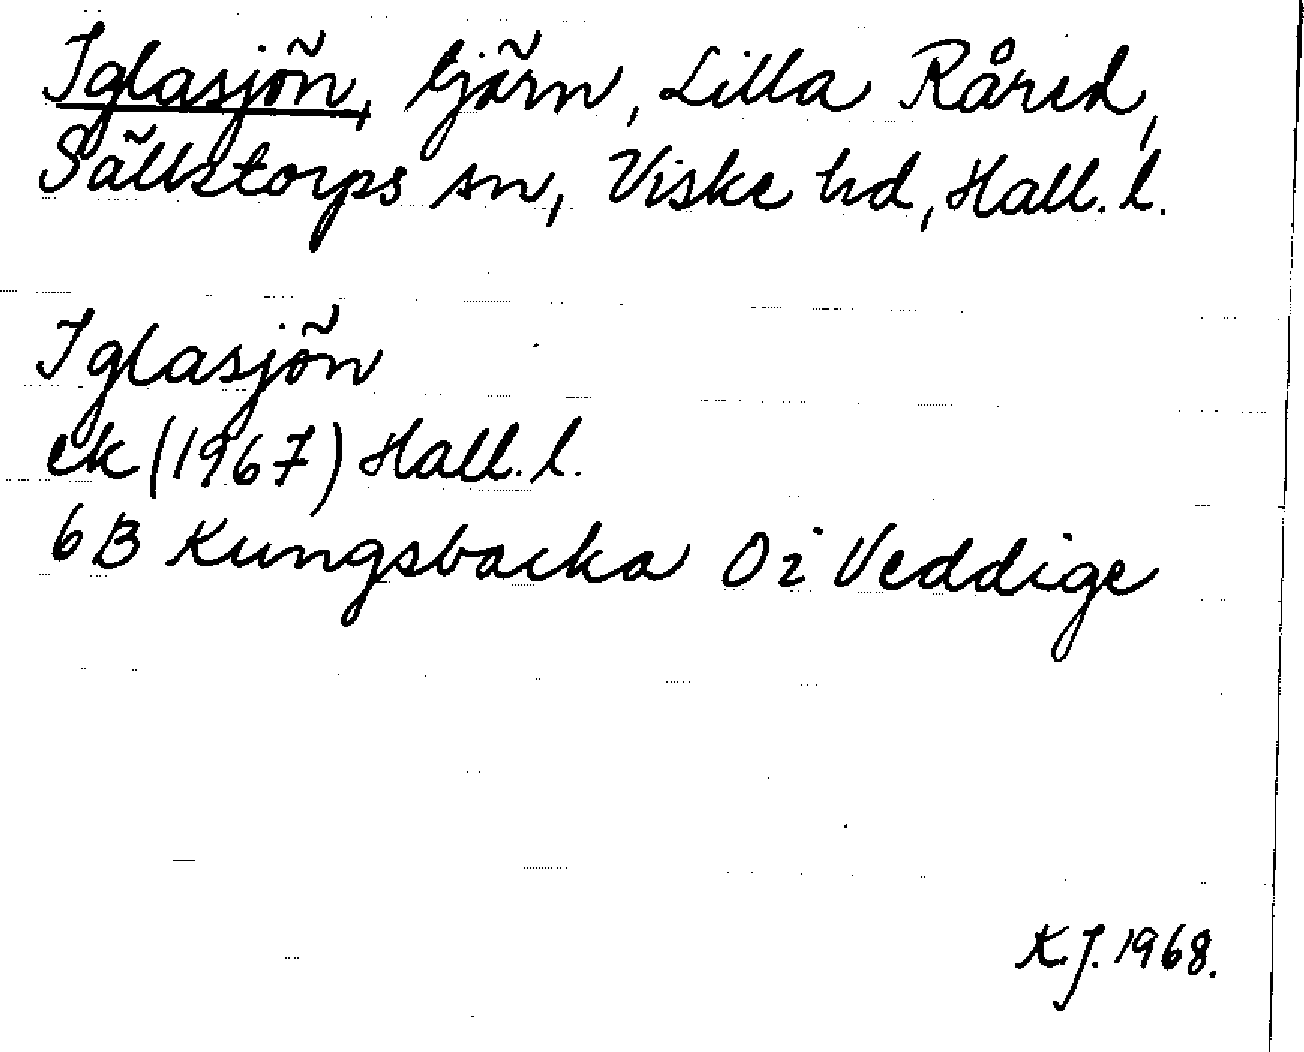 Iglasjön, tjärn, Lilla Råred,
Sällstorps sn, Viske hd, Hall. l.
Iglasjön
ek (1967) Hall. l.
6B Kungsbacka 0i Veddige
K.J. 1968.